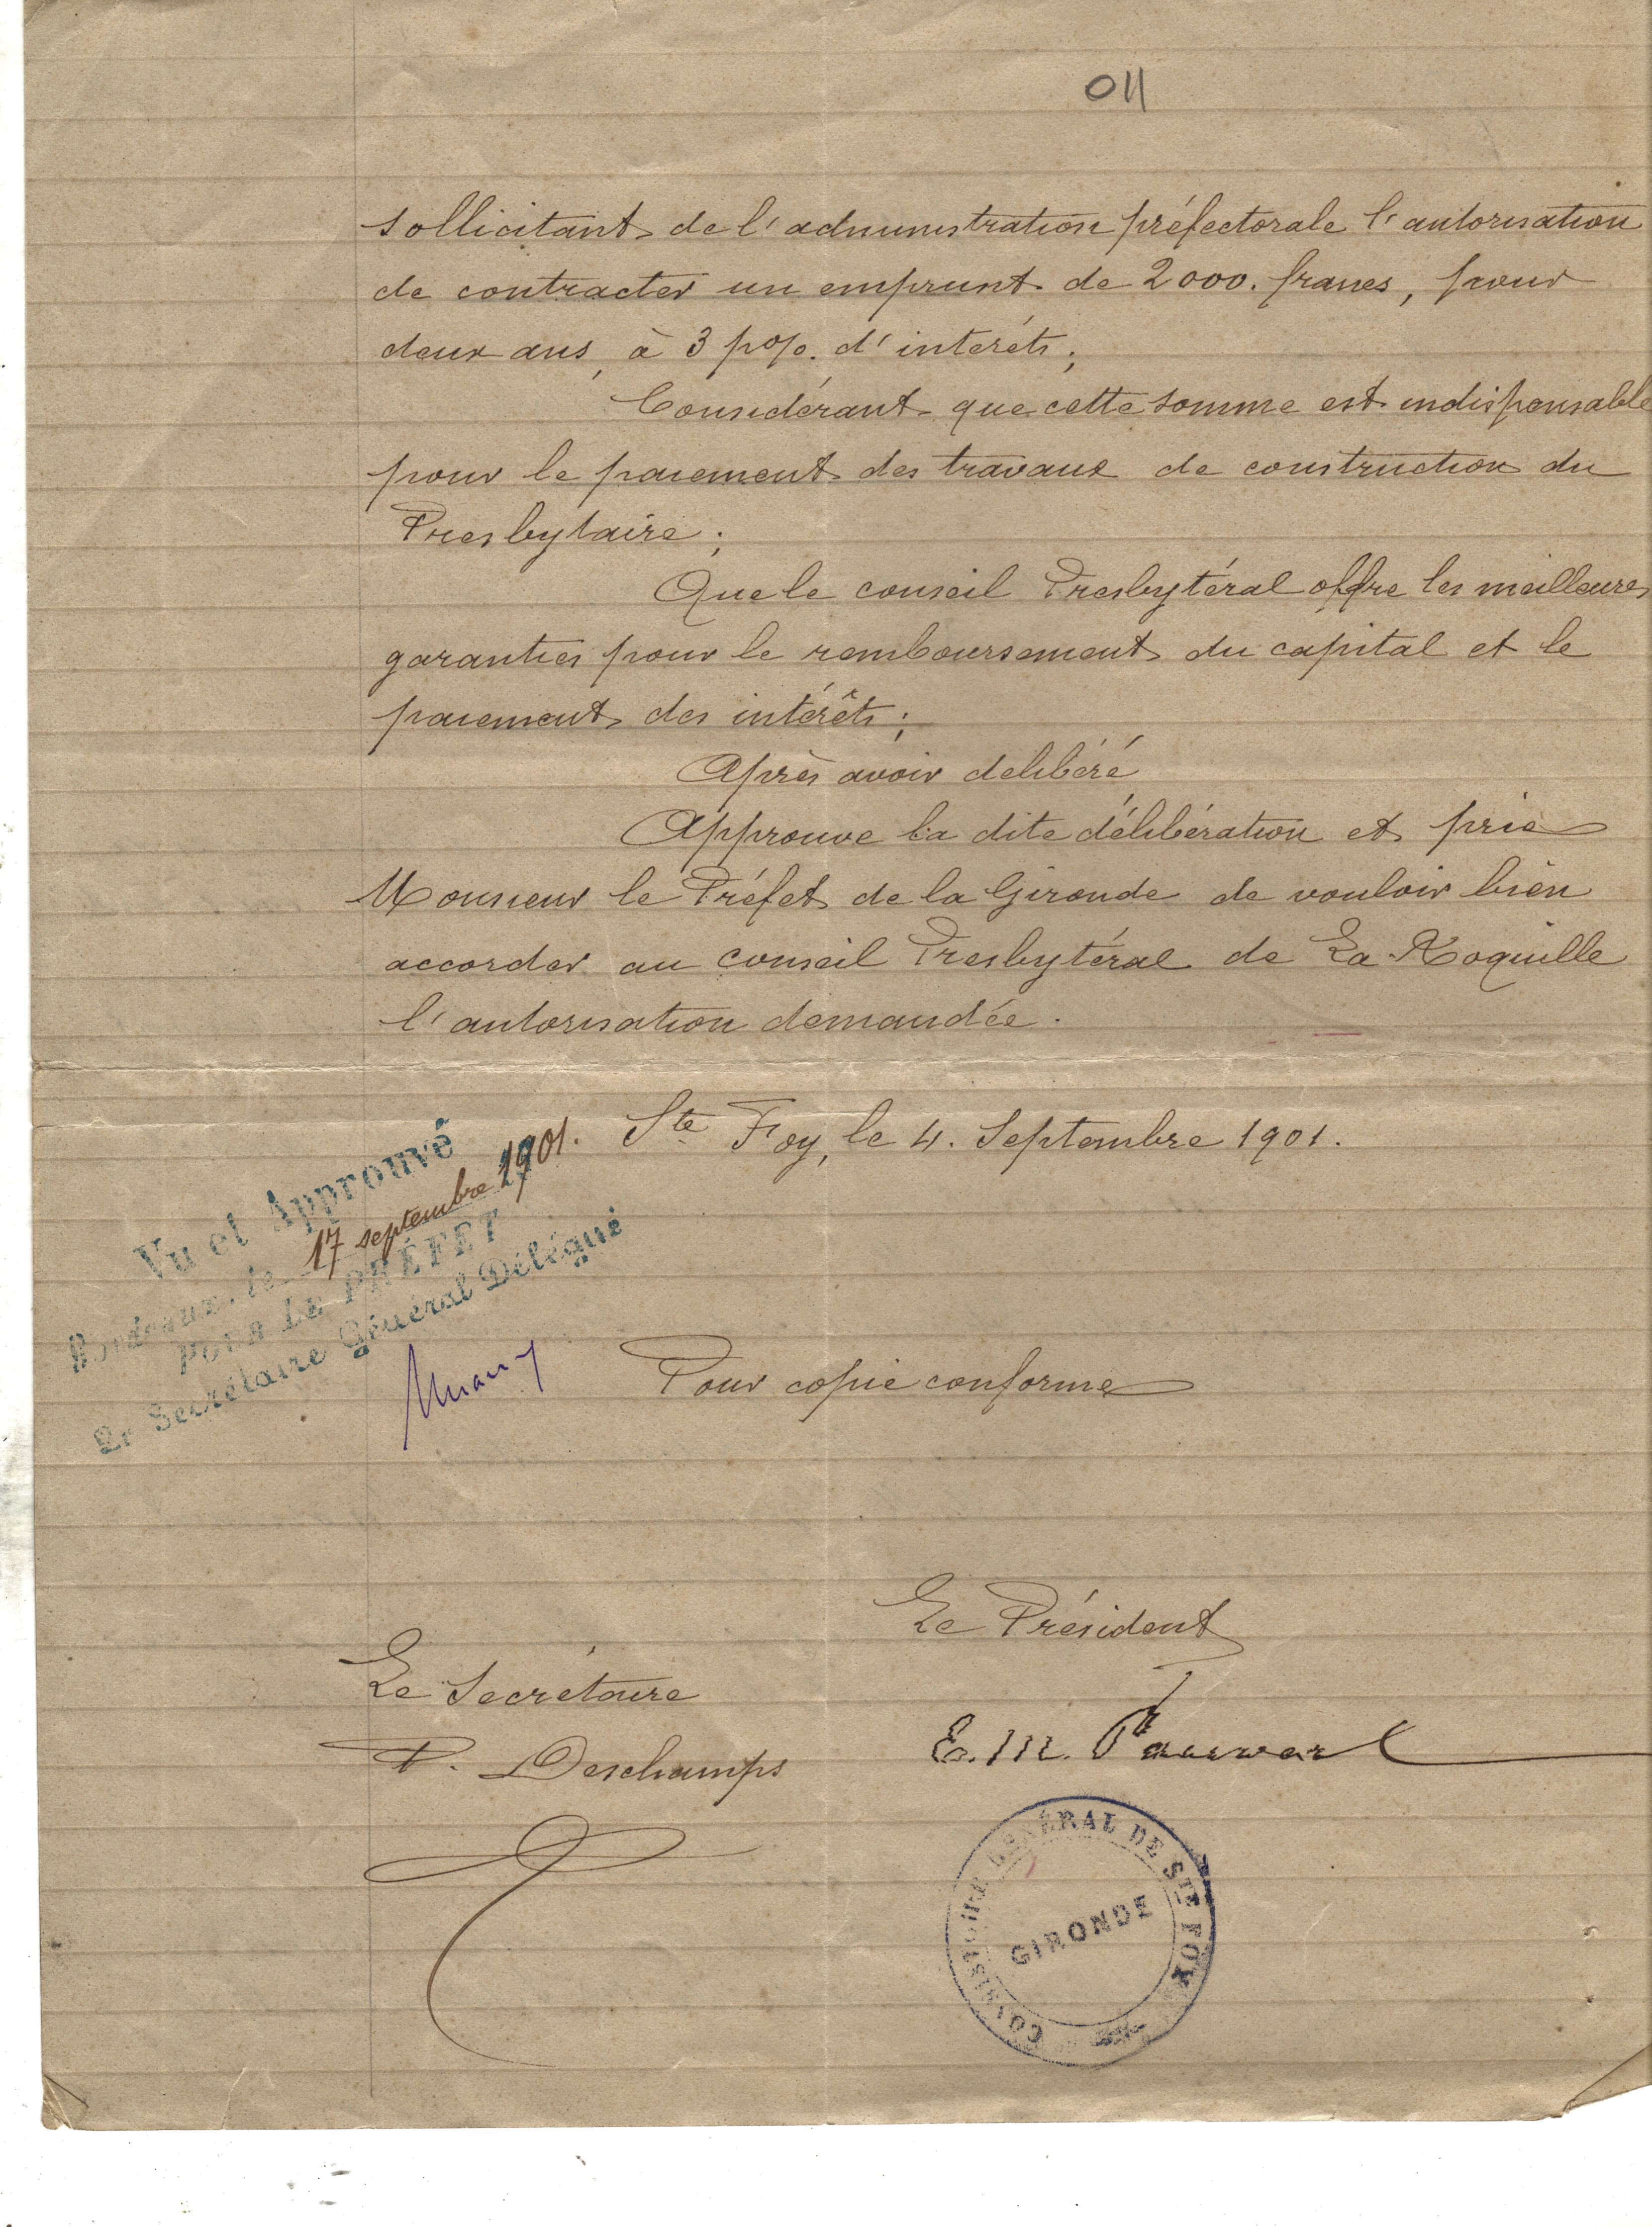 011
sollicitant de l'administration préfectorale l'autorisation
de contracter un emprunt de 2000. francs, pour
deux ans, à 3 po%. d'intérêts;
Considérant que cette somme est indispensable
pour le paiement des travaux de construction du
Presbytaire;
Que le conseil Presbytéral offre les meilleures
garanties pour le remboursement du capital et le
paiement des intérêts;
Après avoir délibéré,
Approuve la dite délibération et prie
Monsieur le Préfet de la Gironde de vouloir bien
accorder au conseil Presbytéral de La Roquille
l'autorisation demandée.
Ste Foy, le 4. Septembre 1901.
Vu et Approuvé
Bordeaux, le 17 septembre 1901.
POUR LE PRÉFET
Le Secrétaire Général Délégué
Pour copie conforme
Le Président
Le Secrétaire
E. M.
P. Deschamps
CONSISTOIRE GÉNÉRAL DE STE FOY
GIRONDE